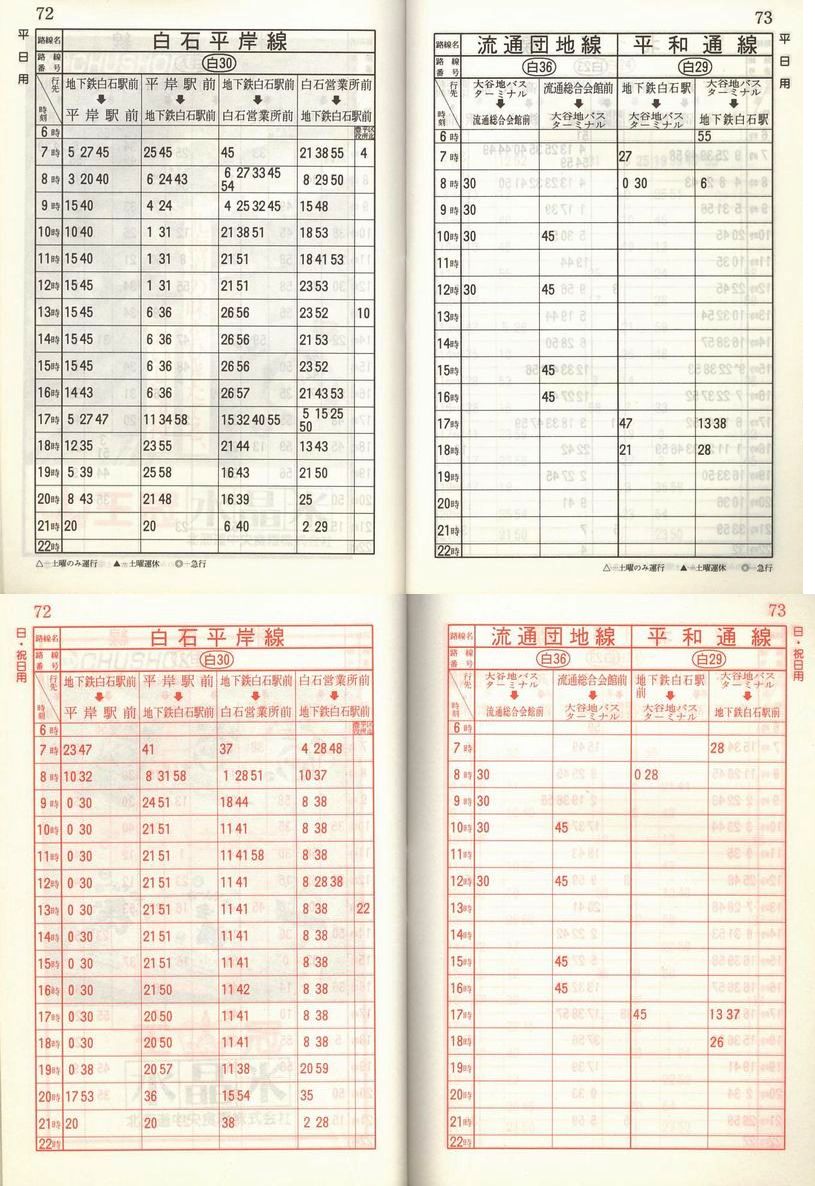 72
平日用
路線名 白石平岸線
路線番号 白30
行先 地下鉄白石駅前 平岸駅前 地下鉄白石駅前 白石営業所前
時刻 平岸駅前 地下鉄白石駅前 白石営業所前 地下鉄白石駅前
6時
7時 5 27 45 25 45 45 21 38 55 4
8時 3 20 40 6 24 43 6 27 33 45 54 8 29 50
9時 15 40 4 24 4 25 32 45 15 48
10時 10 40 1 31 21 38 51 18 53
11時 15 40 1 31 21 51 18 41 53
12時 15 45 1 31 21 51 23 53
13時 15 45 6 36 26 56 23 52 10
14時 15 45 6 36 26 56 21 53
15時 15 45 6 36 26 56 23 52
16時 14 43 6 36 26 57 21 43 53
17時 5 27 47 11 34 58 15 32 40 55 5 15 25 50
18時 12 35 23 55 21 44 13 43
19時 5 39 25 58 16 43 21 50
20時 8 43 21 48 16 39 25
21時 20 20 6 40 2 29
22時
△―土曜のみ運行 ▲―土曜運休 ◎―急行
73
平日用
路線名 流通団地線 平和通線
路線番号 白36 白29
行先 大谷地バスターミナル 流通総合会館前 地下鉄白石駅 大谷地バスターミナル
時刻 流通総合会館前 大谷地バスターミナル 大谷地バスターミナル 地下鉄白石駅前
6時 55
7時 27
8時 30 0 30 6
9時 30
10時 30 45
11時
12時 30 45
13時
14時
15時 45
16時 45
17時 47 13 38
18時 21 28
19時
20時
21時
22時
△―土曜のみ運行 ▲―土曜運休 ◎―急行
72
日・祝日用
路線名 白石平岸線
路線番号 白30
行先 地下鉄白石駅前 平岸駅前 地下鉄白石駅前 白石営業所前
時刻 平岸駅前 地下鉄白石駅前 白石営業所前 地下鉄白石駅前
6時
7時 23 47 41 37 4 28 48
8時 10 32 8 31 58 1 28 51 10 37
9時 0 30 24 51 18 44 8 38
10時 0 30 21 51 11 41 8 38
11時 0 30 21 51 11 41 58 8 38
12時 0 30 21 51 11 41 8 28 38
13時 0 30 21 51 11 41 8 38 22
14時 0 30 21 51 11 41 8 38
15時 0 30 21 51 11 41 8 38
16時 0 30 21 50 11 42 8 38
17時 0 30 20 50 11 41 8 38
18時 0 30 20 50 11 41 8 38
19時 0 38 20 57 11 38 20 59
20時 17 53 36 15 54 35
21時 20 20 38 2 28
22時
73
日・祝日用
路線名 流通団地線 平和通線
路線番号 白36 白29
行先 大谷地バスターミナル 流通総合会館前 地下鉄白石駅前 大谷地バスターミナル
時刻 流通総合会館前 大谷地バスターミナル 大谷地バスターミナル 地下鉄白石駅前
6時
7時 28
8時 30 0 28
9時 30
10時 30 45
11時
12時 30 45
13時
14時
15時 45
16時 45
17時 45 13 37
18時 26
19時
20時
21時
22時